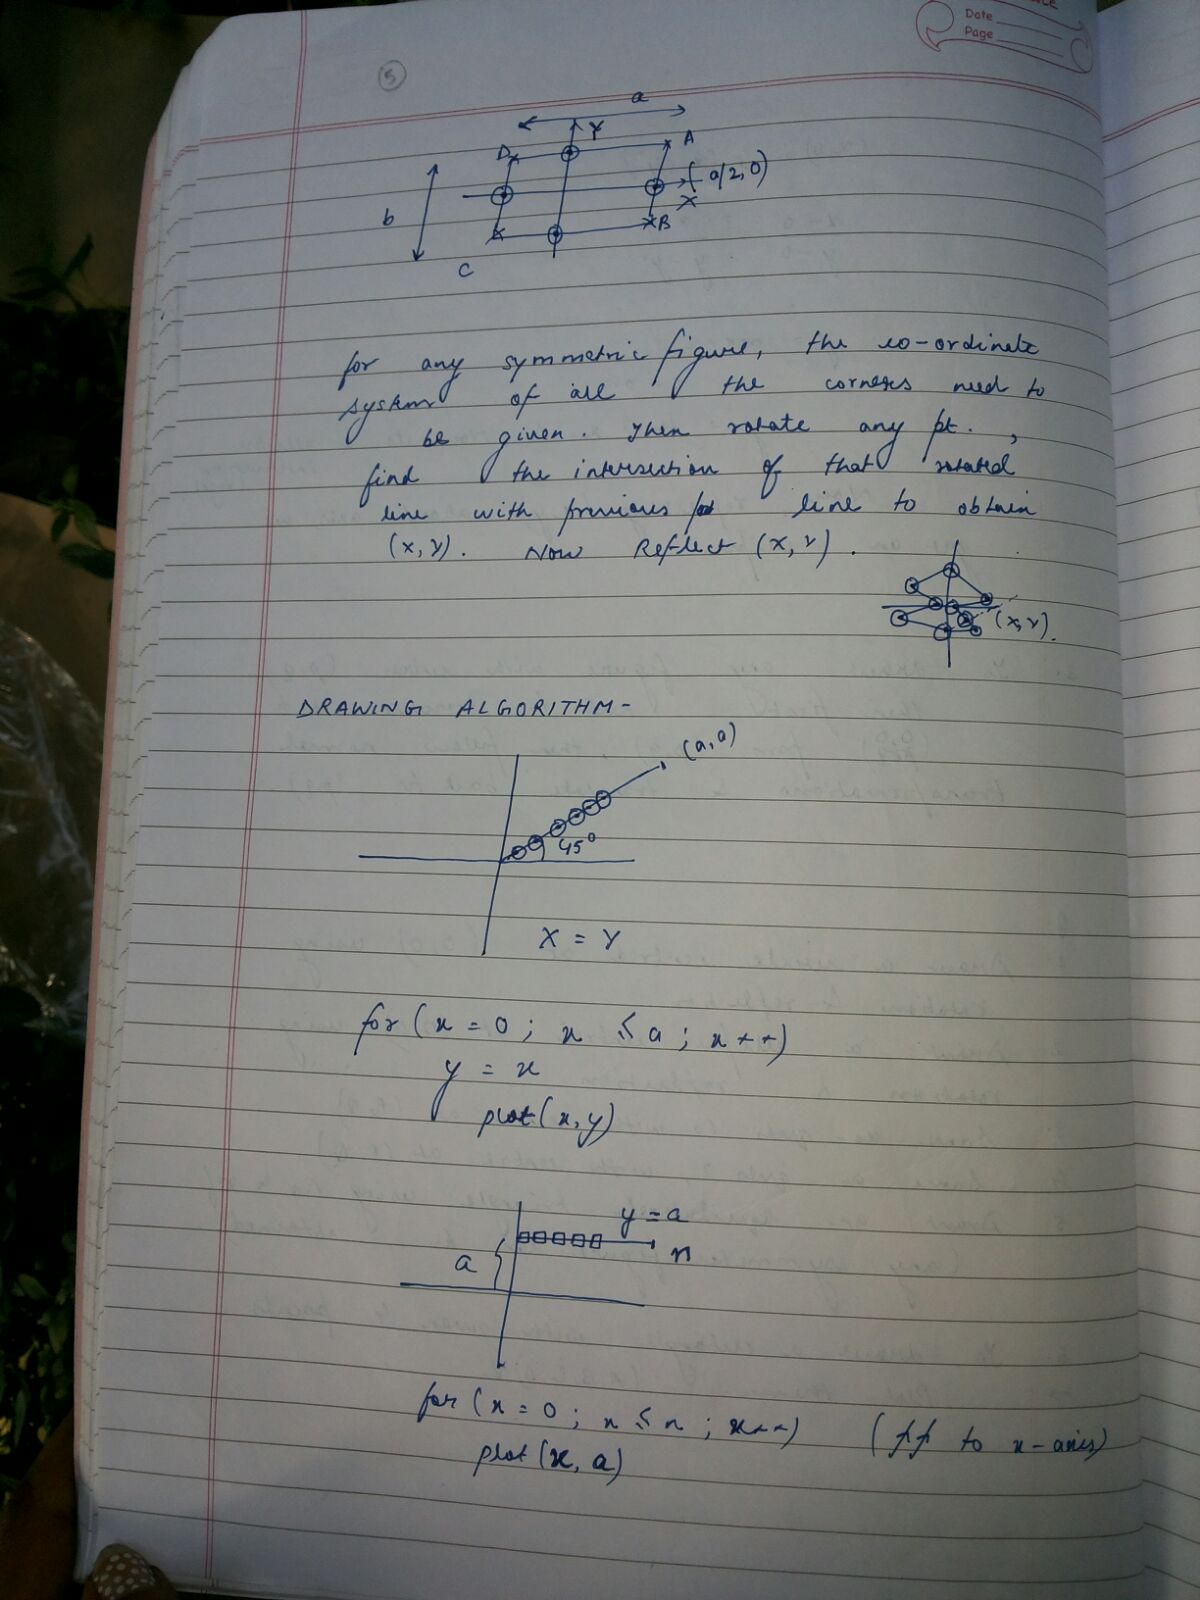 Date
Page
5
a
Y
D
A
(a/2, 0)
X
b
B
C
for any symmetric figure, the co-ordinate
system of all the corners need to
be given. Then rotate any pt.,
find the intersection of that rotated
line with previous line to obtain
(x, y). Now Reflect (x, y).
(x, y).
DRAWING ALGORITHM-
(a, a)
45°
X = Y
for (x = 0; x ≤ a; x++)
y = x
plot(x, y)
y = a
a
n
for (x = 0; x ≤ n; x++) (// to x-axis)
plot(x, a)